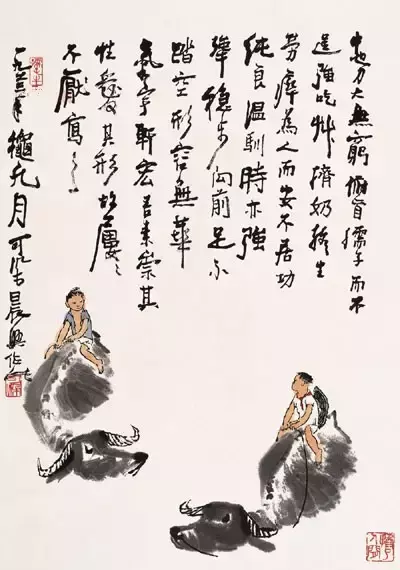 牛也力大無窮俯首孺子而不
逞強吃艸擠奶終生
勞瘁為人而安不居功
純良温馴時亦強
犟穩步向前足不
踏空形容無華
氣宇軒宏吾素崇其
性愛其形故屢々
不厭寫之
龝九月可染晨興作